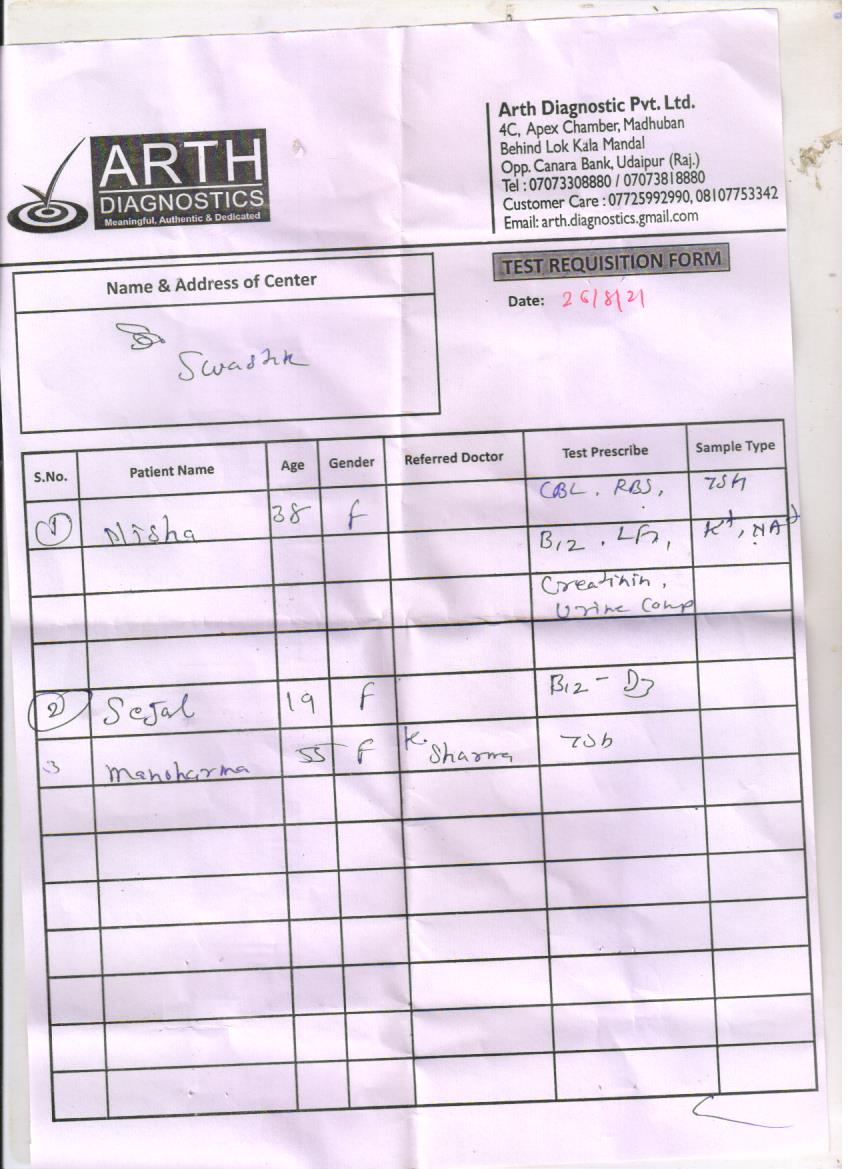 ARTH
DIAGNOSTICS
Meaningful, Authentic & Dedicated
Arth Diagnostic Pvt. Ltd.
4C, Apex Chamber, Madhuban
Behind Lok Kala Mandal
Opp. Canara Bank, Udaipur (Raj.)
Tel : 07073308880 / 07073818880
Customer Care : 07725992990, 08107753342
Email: arth.diagnostics.gmail.com
TEST REQUISITION FORM
Date: 26/8/21
Name & Address of Center
S.No. Patient Name Age Gender Referred Doctor Test Prescribe Sample Type
1 Nisha 38 F CBC, RBS, TSH
B12, LFT, K+, NA+
Creatinin,
Urine Comp
2 Sejal 19 F B12 - D3
3 Manoharma 55 F K. Sharma TSh